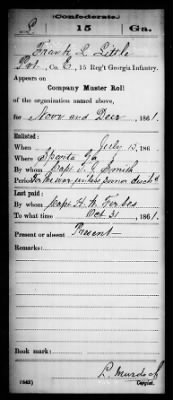 Confederate.
L 15 Ga.
Frank L Little
Pvt, Co. E, 15 Reg't Georgia Infantry.
Appears on
Company Muster Roll
of the organization named above,
for Novr and Decr, 1861.
Enlisted:
When July 15, 186
Where Sparta Ga
By whom Capt Smith
Period for the war unless sooner disch'd
Last paid:
By whom Capt H. H. Forbes
To what time Oct 31, 1861.
Present or absent Present
Remarks:
Book mark:
(642)
L. Murdoch
Copyist.